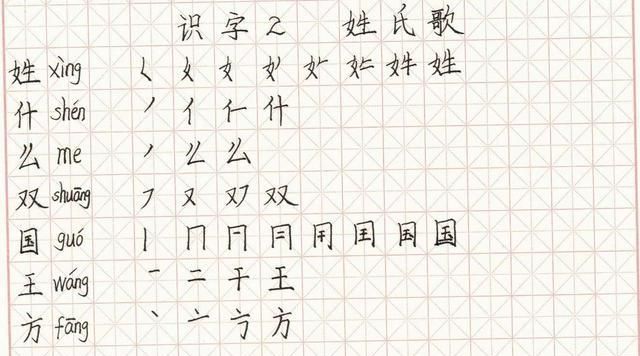 识字2 姓氏歌
姓 xìng 𡿨 女 女 女 姓 姓 姓 姓
什 shén ㇒ 亻 仁 什
么 me ㇒ 么 么
双 shuāng ㇇ 又 双 双
国 guó 丨 冂 冂 国 国 国 国 国
王 wáng 一 二 干 王
方 fāng 丶 亠 方 方